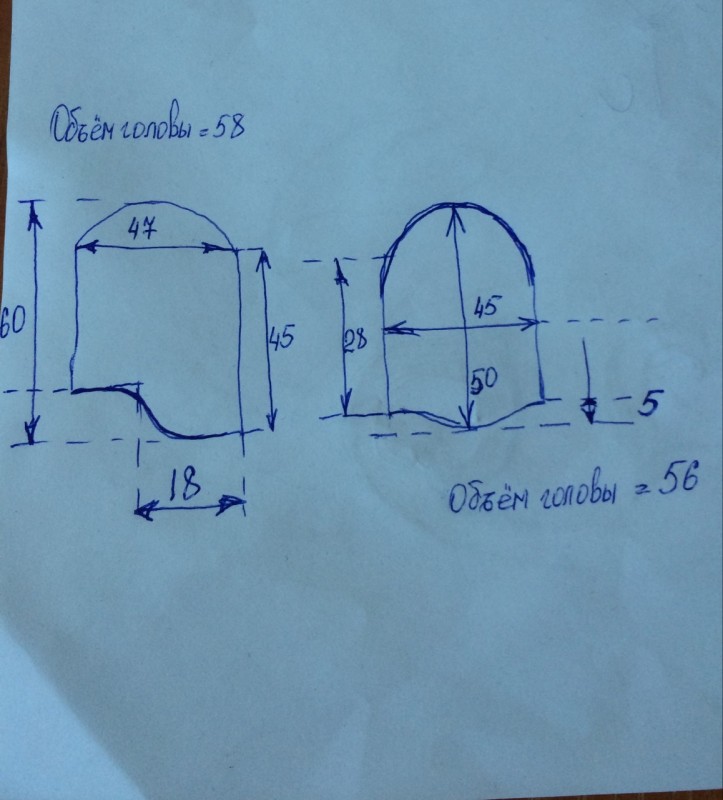 Объём головы = 58
47
60
45
18
28
45
50
5
Объём головы = 56